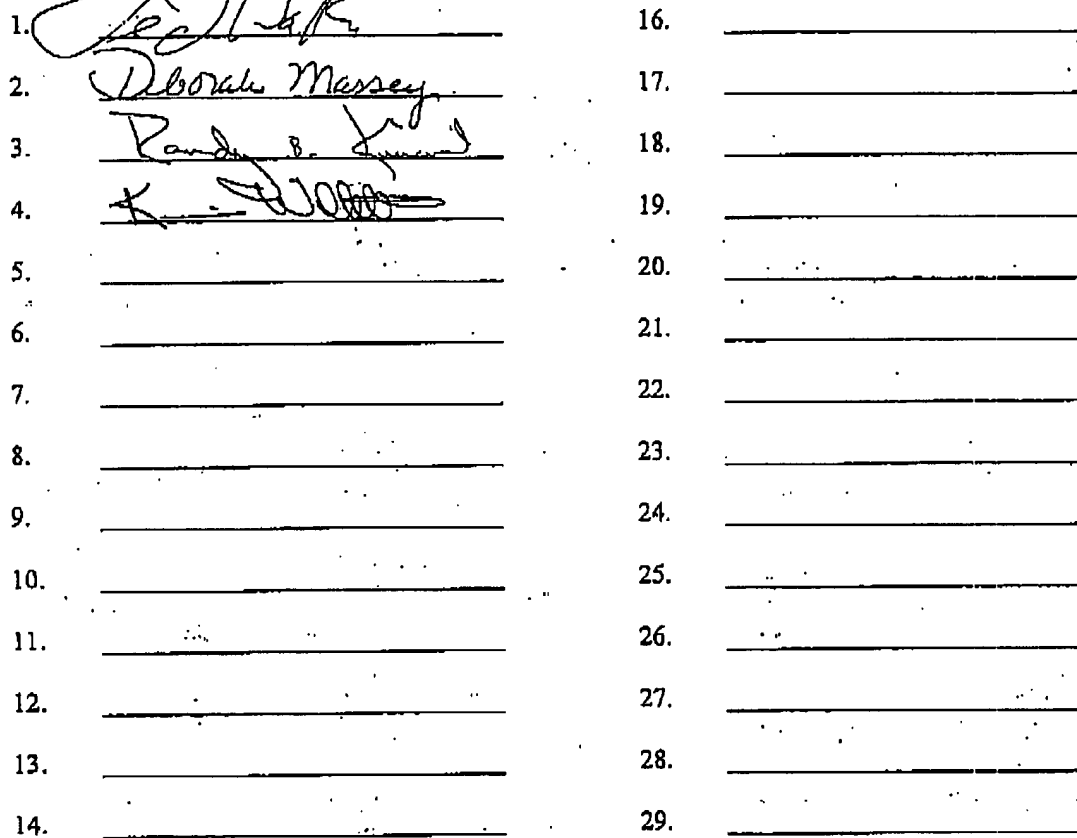 1.
2. Deborah Massey
3. Randy B.
4.
5.
6.
7.
8.
9.
10.
11.
12.
13.
14.
16.
17.
18.
19.
20.
21.
22.
23.
24.
25.
26.
27.
28.
29.